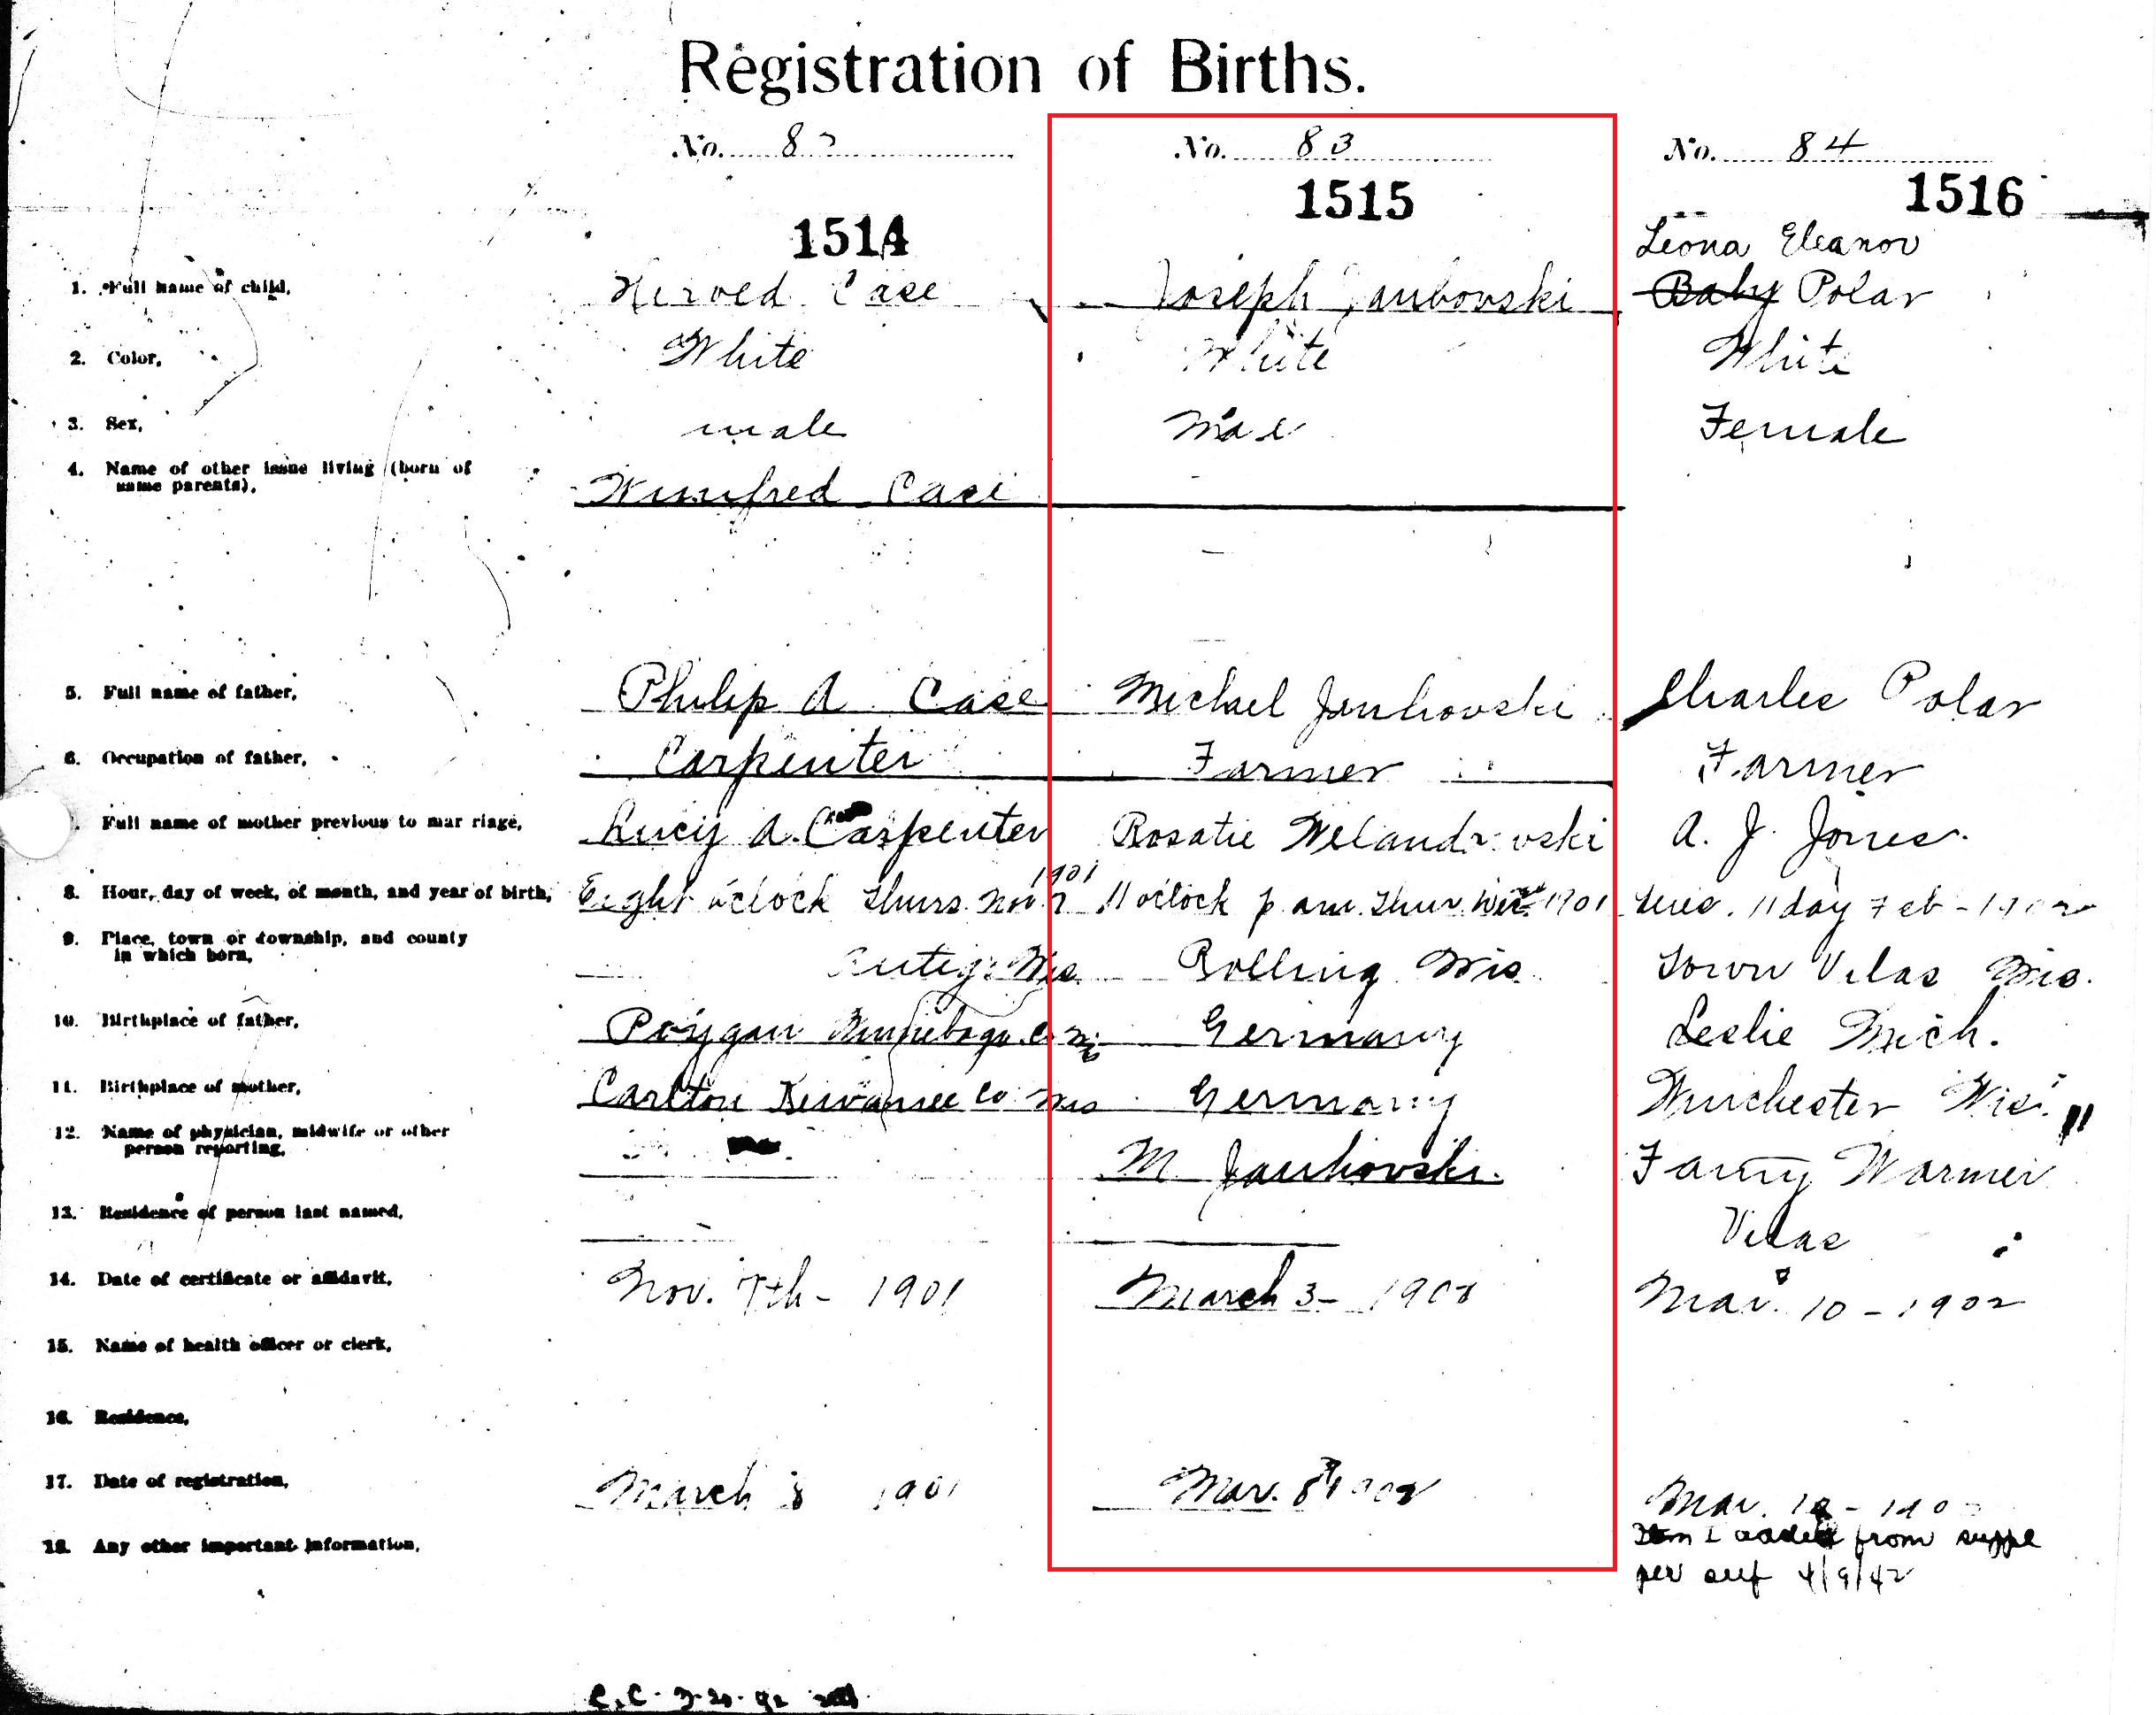 Registration of Births.
No. 82 No. 83 No. 84
1514 1515 1516
Leona Eleanor
1. Full name of child, Case Joseph Jankovski Baby Polar
2. Color, White White White
3. Sex, male Female
4. Name of other issue living (born of
same parents), Winnifred Case
5. Full name of father, Philip A Case Michael Jankovski Charles Polar
6. Occupation of father, Carpenter Farmer Farmer
7. Full name of mother previous to marriage, Lucy A. Carpenter Rosatie A. J. Jones.
1901
8. Hour, day of week, of month, and year of birth, Eight o'clock Thurs. Nov. 7 11 oclock p am. Thur 1901 Tues. 11 day Feb - 1902
9. Place, town or township, and county
in which born, Antigo Wis. Rolling Wis. Town Vilas Wis.
10. Birthplace of father, Poygan Winnebago Co Wis Germany Leslie Mich.
11. Birthplace of mother, Carlton Kewaunee Co Wis Germany Winchester Wis.
12. Name of physician, midwife or other
person reporting, M Jankovski. Fanny Warmer
13. Residence of person last named, Vilas
14. Date of certificate or affidavit, Nov. 7th - 1901 March 3 - Mar. 10 - 1902
15. Name of health officer or clerk,
16. Residence,
17. Date of registration, March 8 1901 Mar. 8 1902 Mar.
18. Any other important information, Item 1 added from suppl
per 4/9/42
C.C.